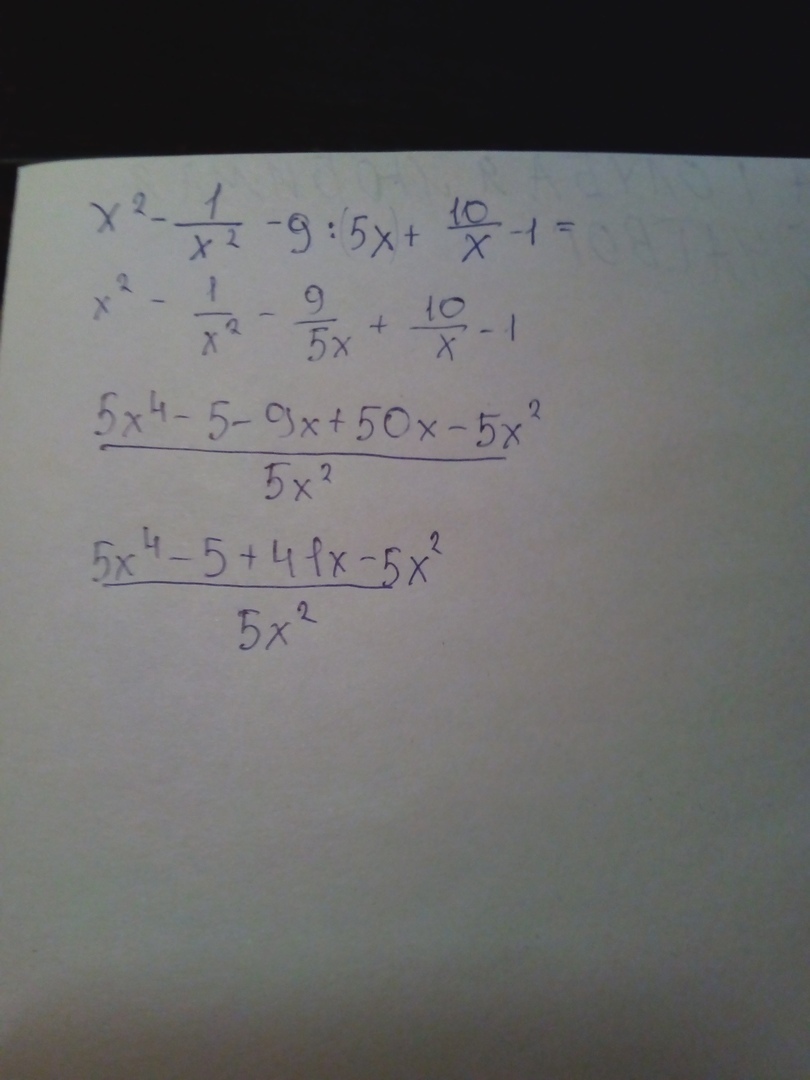 x² - 1/x² - 9 : (5x) + 10/x - 1 =
x² - 1/x² - 9/5x + 10/x - 1
5x⁴ - 5 - 9x + 50x - 5x²
5x²
5x⁴ - 5 + 41x - 5x²
5x²